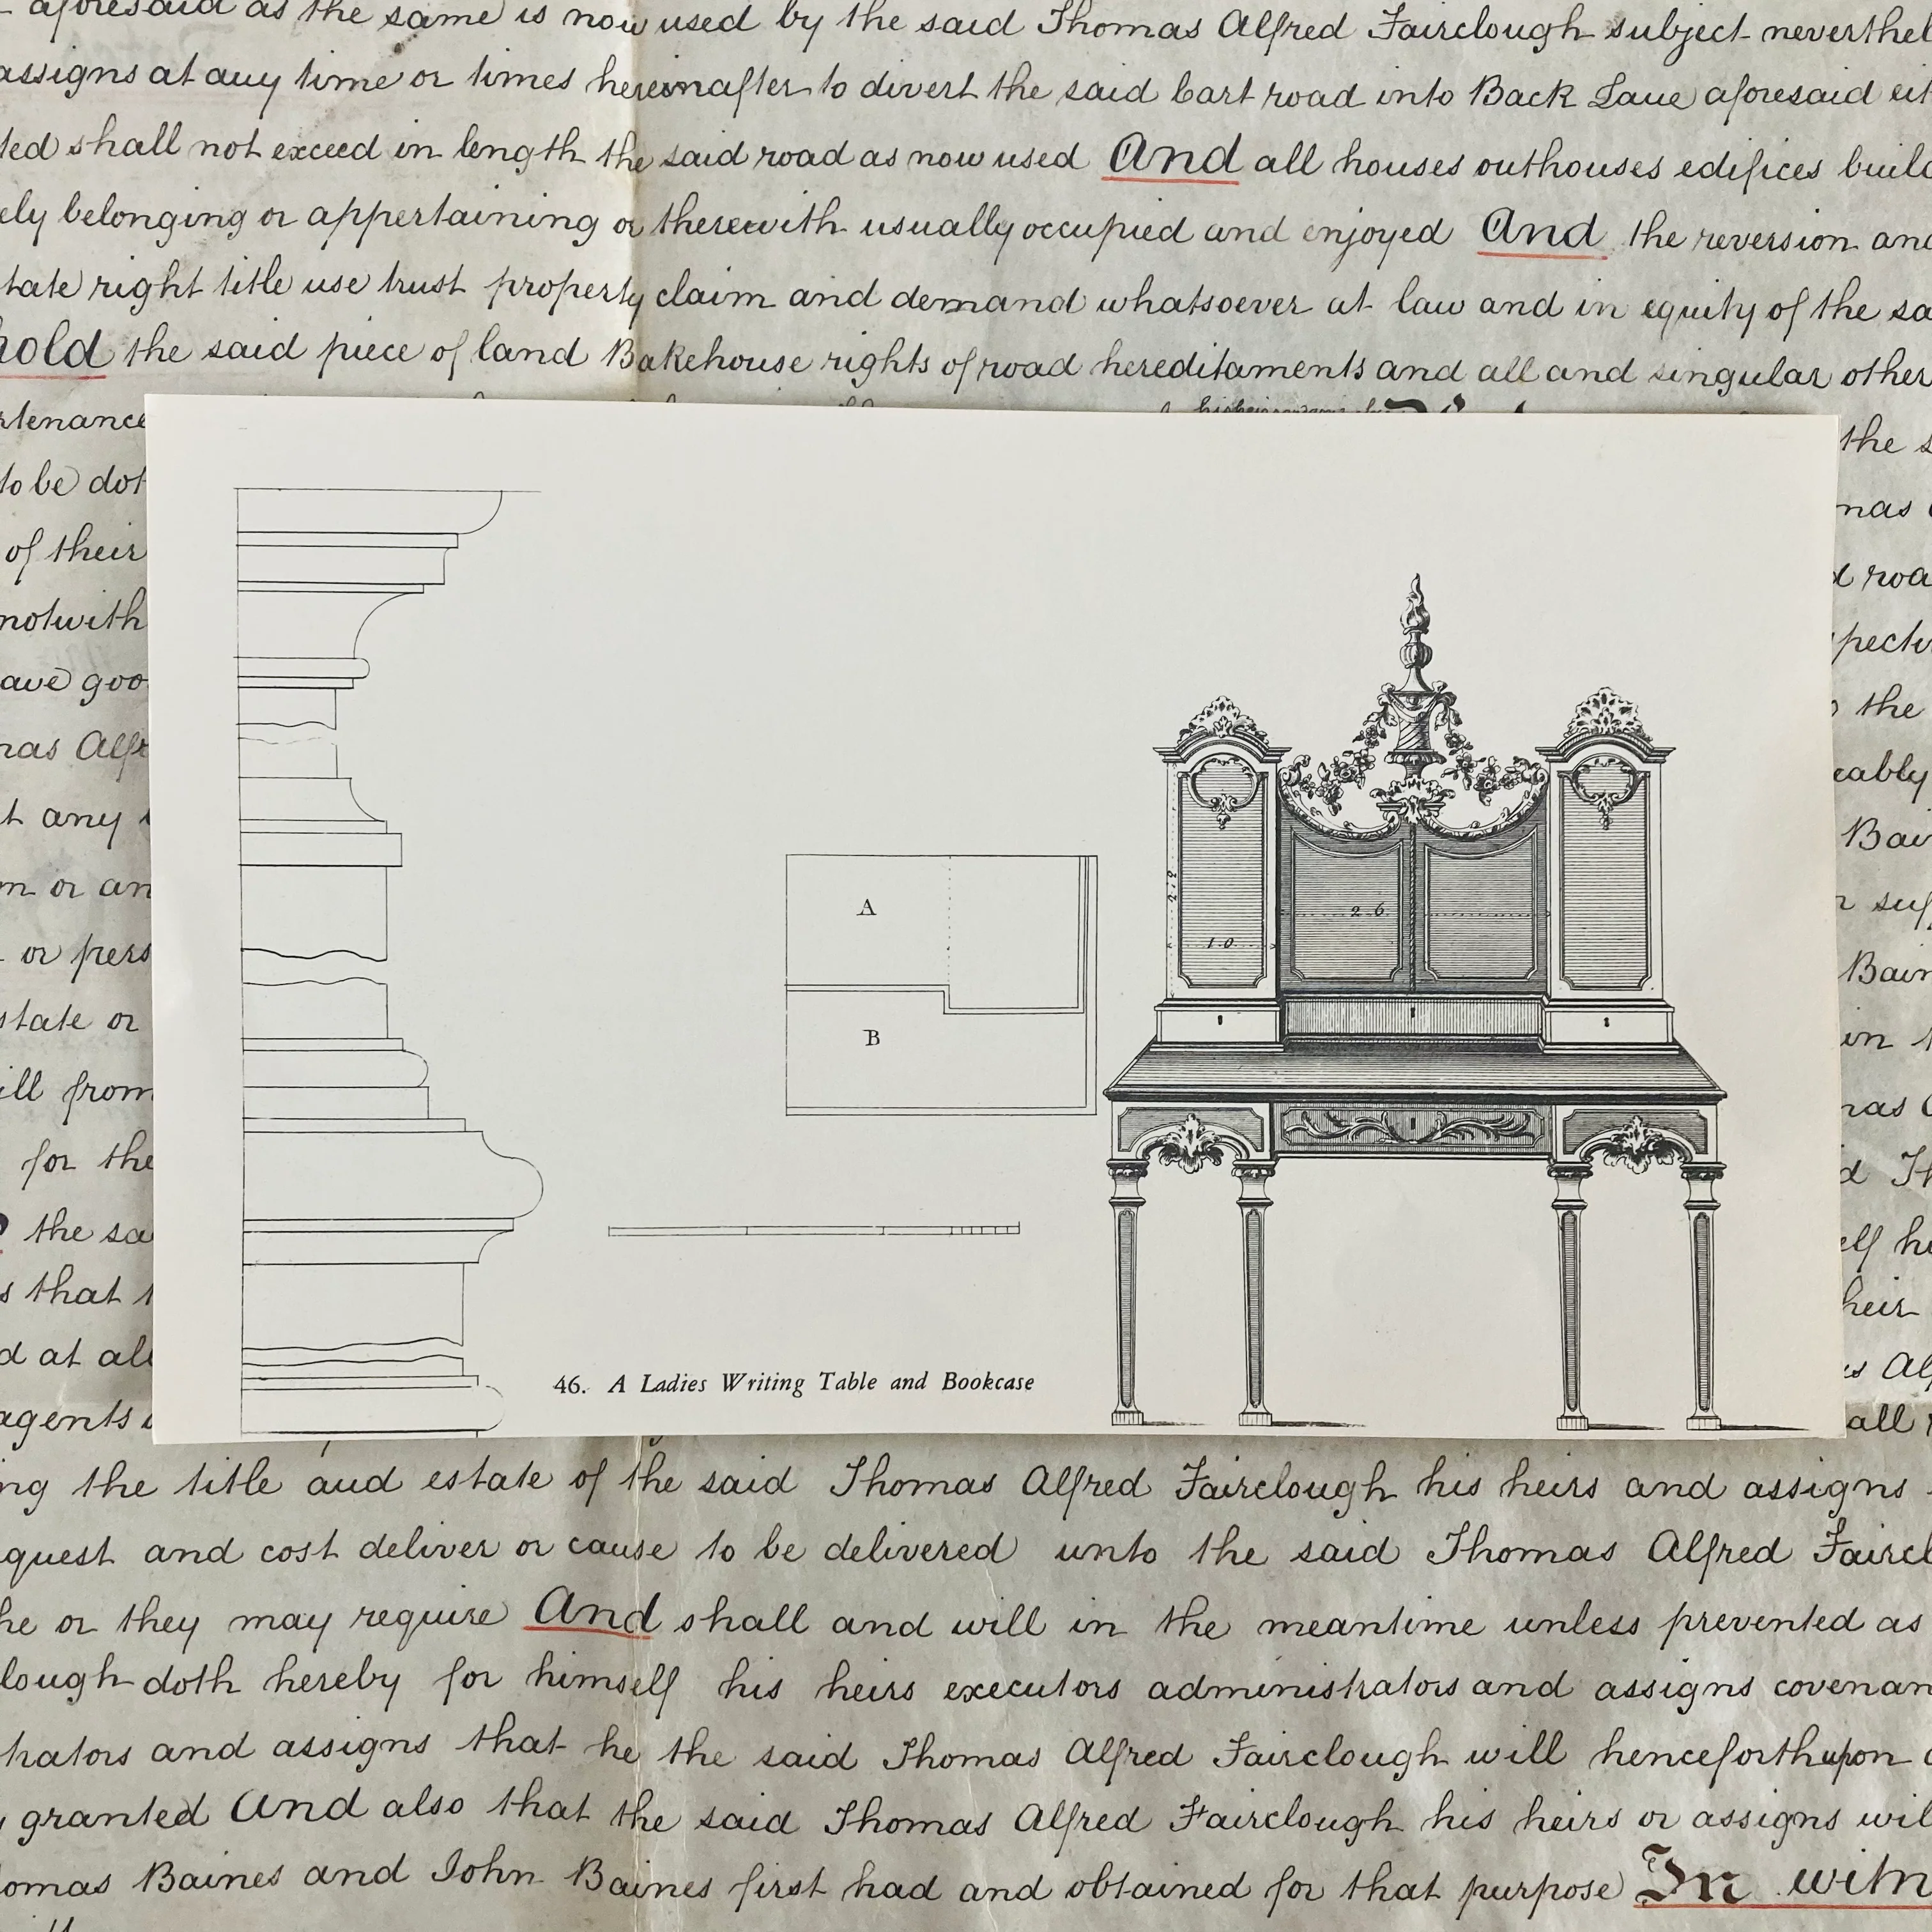 aforesaid as the same is now used by the said Thomas Alfred Fairclough subject neverthel
assigns at any time or times hereinafter to divert the said Cart road into Back Lane aforesaid eit
ted shall not exceed in length the said road as now used And all houses outhouses edifices build
ely belonging or appertaining or therewith usually occupied and enjoyed And the reversion and
tate right title use trust property claim and demand whatsoever at law and in equity of the sa
hold the said piece of land Bakehouse rights of road hereditaments and all and singular other
rtenance the s
to be dot mas
of their d road
notwith specti
ave goo the
mas Alfr eably
t any Bai
m or an r suf
or pers Bain
state or in t
ill from mas
for the d Th
the sa elf he
s that t heir
d at all s Alf
agents all
46. A Ladies Writing Table and Bookcase
A
B
2 6
1 0
ing the title and estate of the said Thomas Alfred Fairclough his heirs and assigns
quest and cost deliver or cause to be delivered unto the said Thomas Alfred Faircl
he or they may require And shall and will in the meantime unless prevented as
lough doth hereby for himself his heirs executors administrators and assigns covenan
trators and assigns that he the said Thomas Alfred Fairclough will henceforth upon
y granted And also that the said Thomas Alfred Fairclough his heirs or assigns wil
omas Baines and John Baines first had and obtained for that purpose In witn